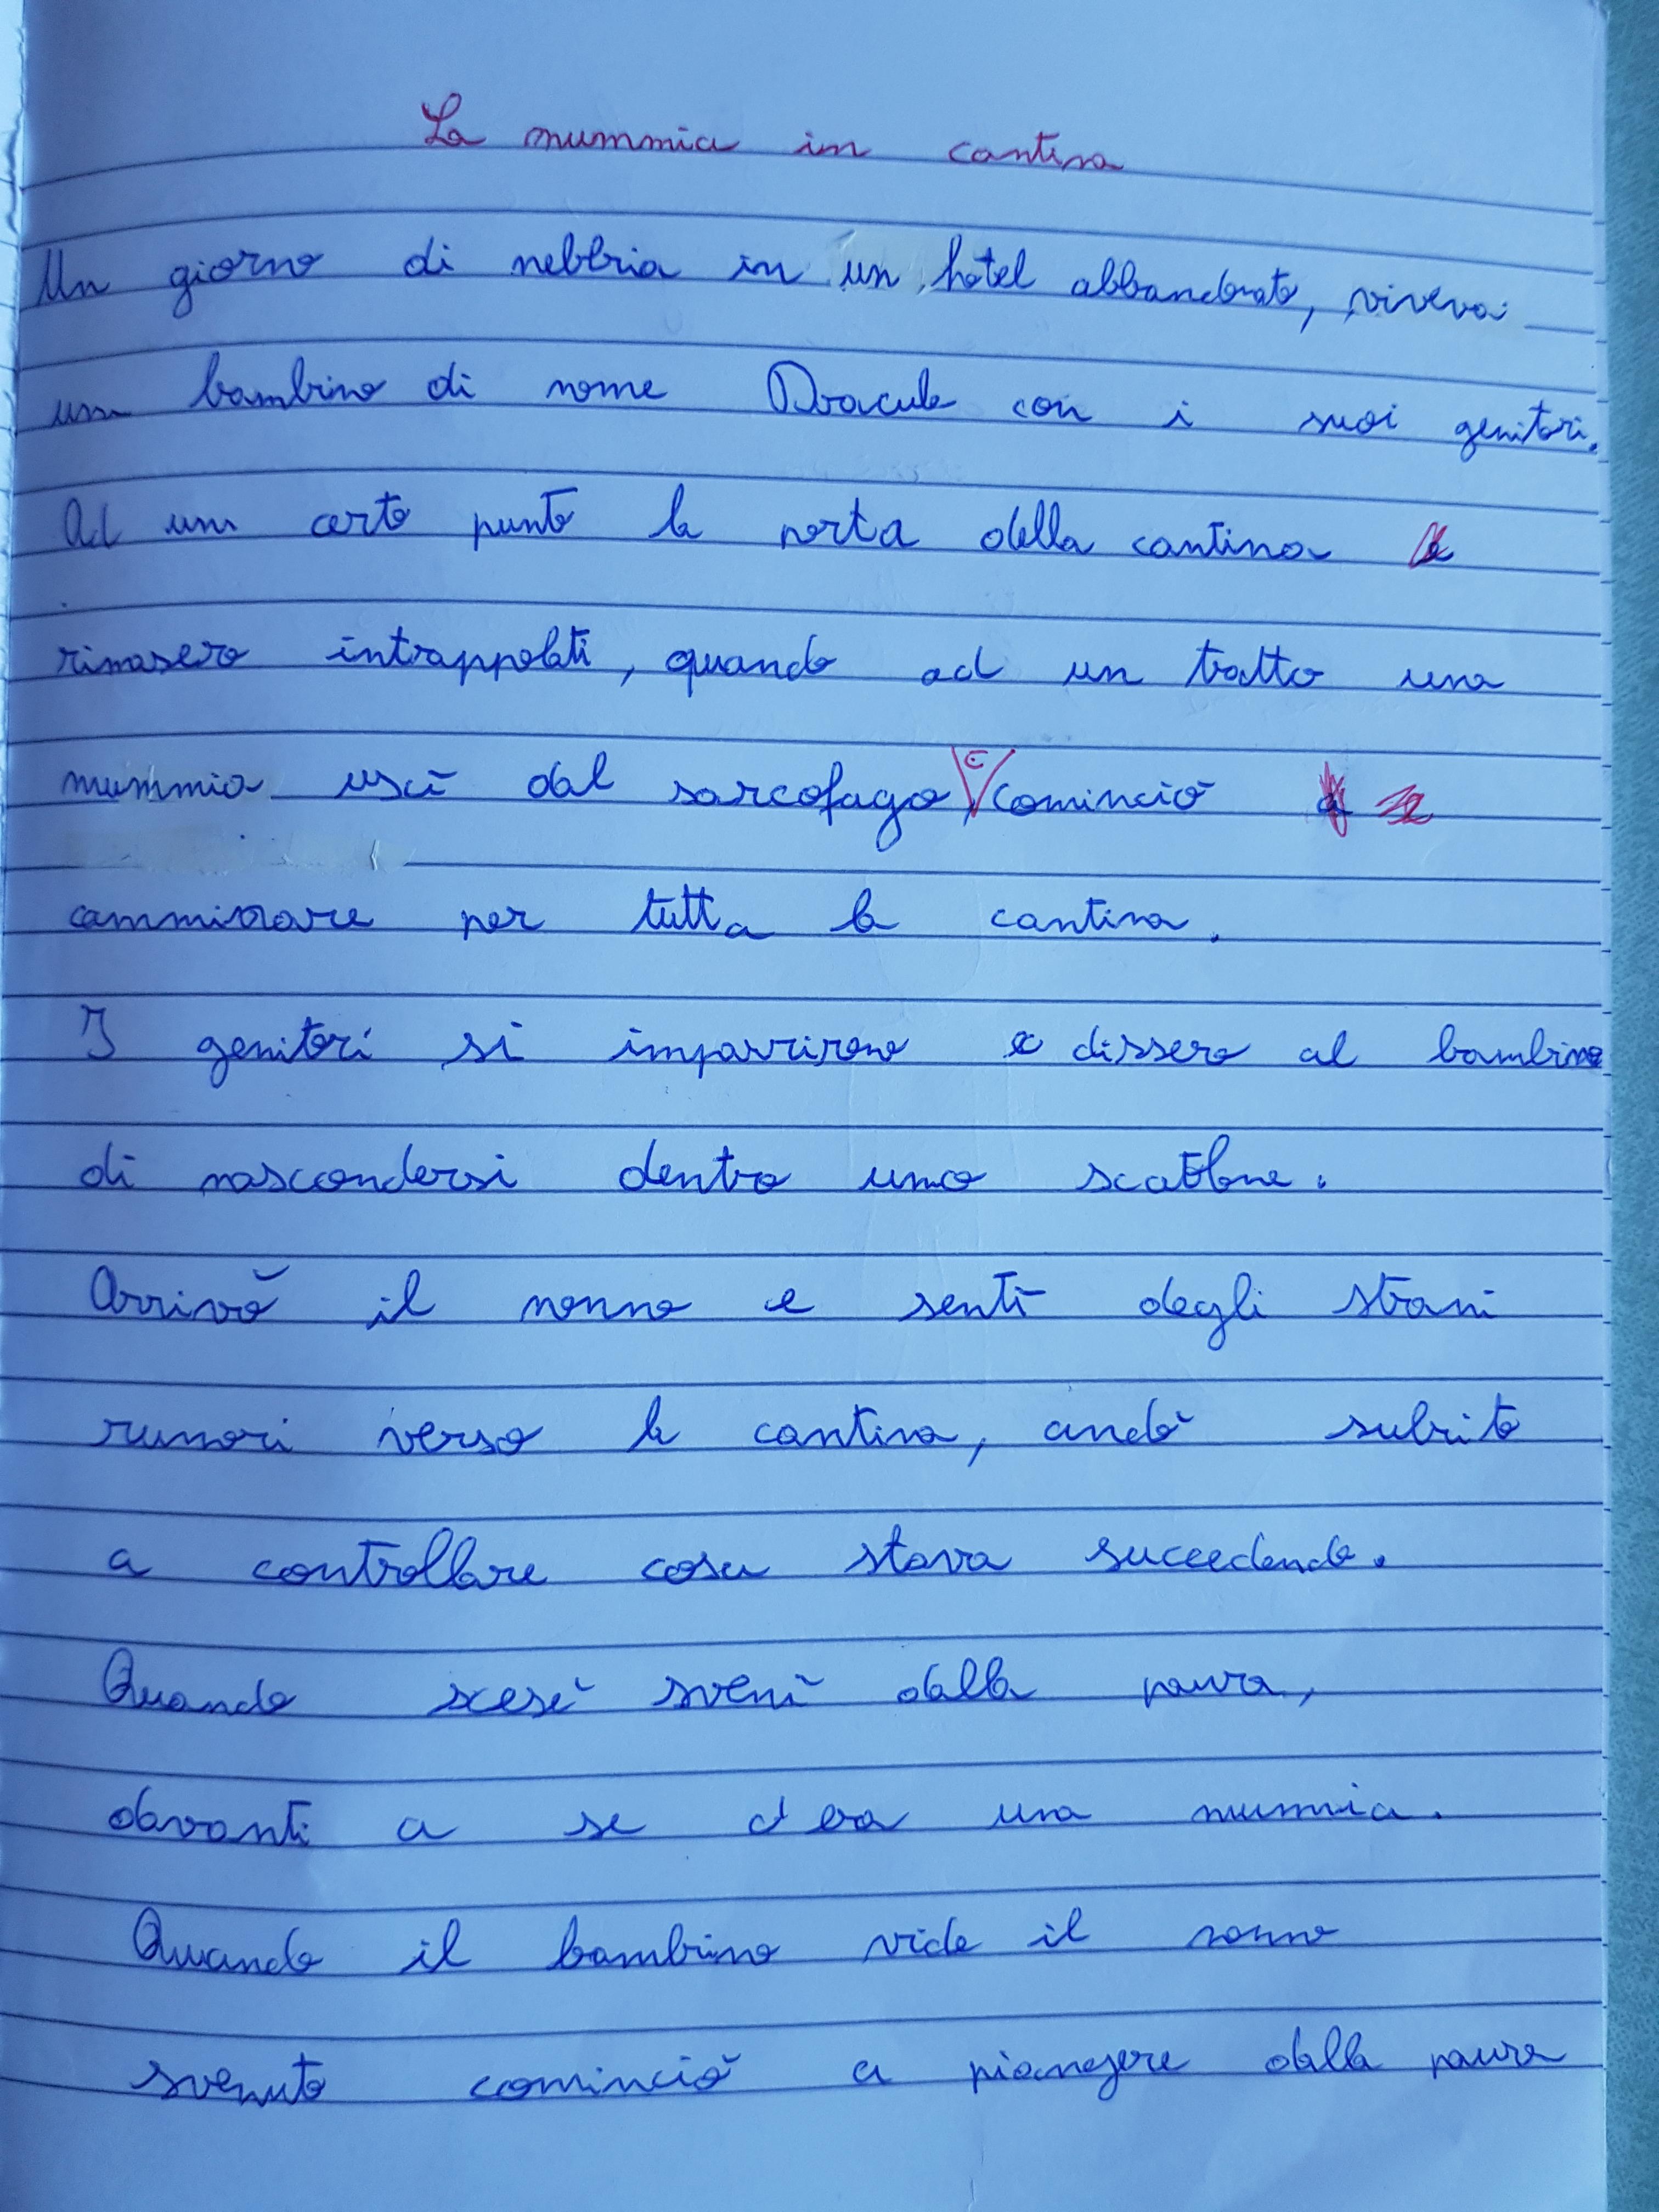 La mummia in cantina
Un giorno di nebbia in un hotel abbandonato, viveva
un bambino di nome Dracula con i suoi genitori.
Ad un certo punto la porta della cantina
rimasero intrappolati, quando ad un tratto una
mummia uscì dal sarcofago e cominciò a
camminare per tutta la cantina.
I genitori si impaurirono e dissero al bambino
di nascondersi dentro uno scatolone.
Arrivò il nonno e sentì degli strani
rumori verso la cantina, andò subito
a controllare cosa stava succedendo.
Quando scesè svenì dalla paura,
davanti a se c'era una mummia.
Quando il bambino vide il nonno
svenuto cominciò a piangere dalla paura